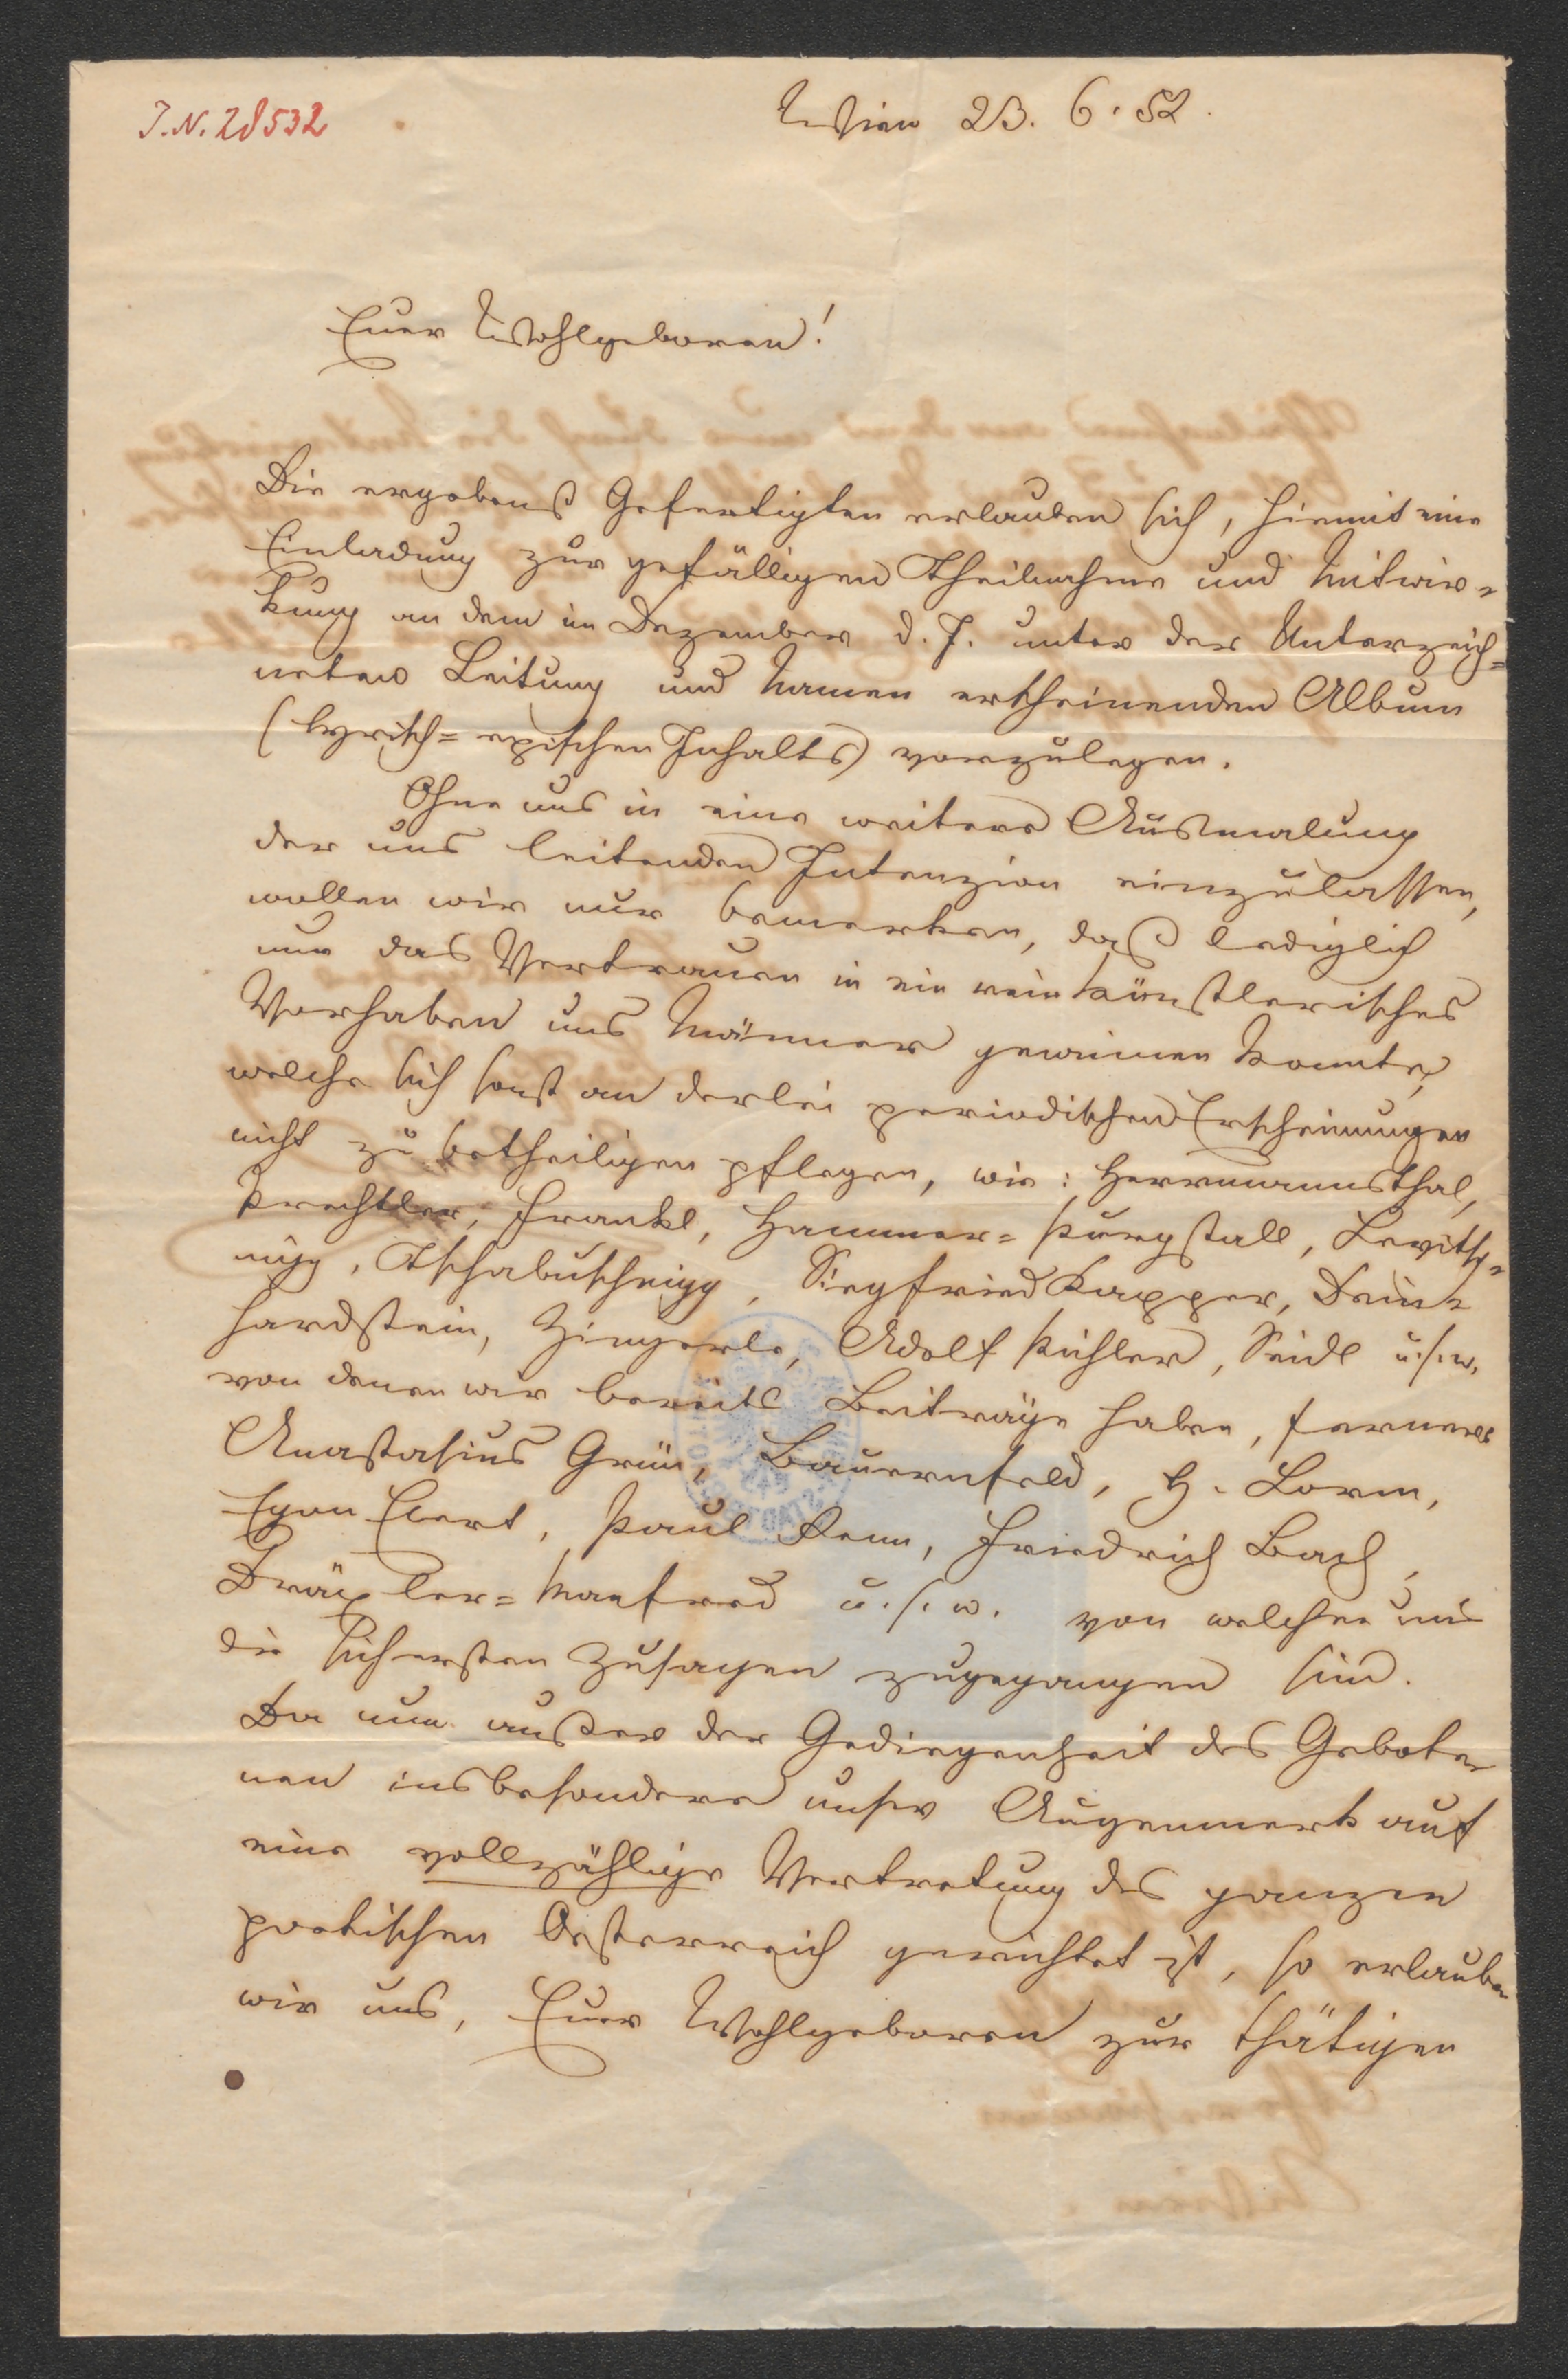 J.N. 28532
Wien 23. 6. 52.
Euer Wohlgeboren!
Die ergebenst Gefertigten erlauben sich, hiemit eine
Einladung zur gefälligen Theilnahme und Mitwir-
kung an dem im Dezember d. J. unter der Unterzeich=
neten Leitung und Namen erscheinenden Album
(lyrisch=epischen Inhalts) vorzulegen.
Ohne uns in eine weitere Ausmalung
der uns leitenden Intenzion einzulassen,
wollen wir nur bemerken, daß lediglich
nur das Vertrauen in ein rein künstlerisches
Vorhaben uns Männer gewinnen konnte,
welche sich sonst an derlei periodischen Erscheinungen
nicht zu betheiligen pflegen, wie: Herrmannsthal,
Prechtler, Frankl, Hammer=Purgstall, Levitsch-
nigg, Tschabuschnigg, Siegfried Kapper, Dein-
hardstein, Zingerle, Adolf Pichler, Seidl u.s.w.
von denen wir bereits Beiträge haben, ferners
Anastasius Grün, Bauernfeld, H. Lorm,
Egon Ebert, Paul Renn, Friedrich Bach,
Dräxler=Manfred u.s.w. von welchen uns
die sichersten Zusagen zugegangen sind.
Da nun außer der Gediegenheit des Gebote-
nen insbesondere unser Augenmerk auf
eine vollzählige Vertretung des ganzen
poetischen Oesterreich gerichtet ist, so erlauben
wir uns, Euer Wohlgeboren zur thätigen